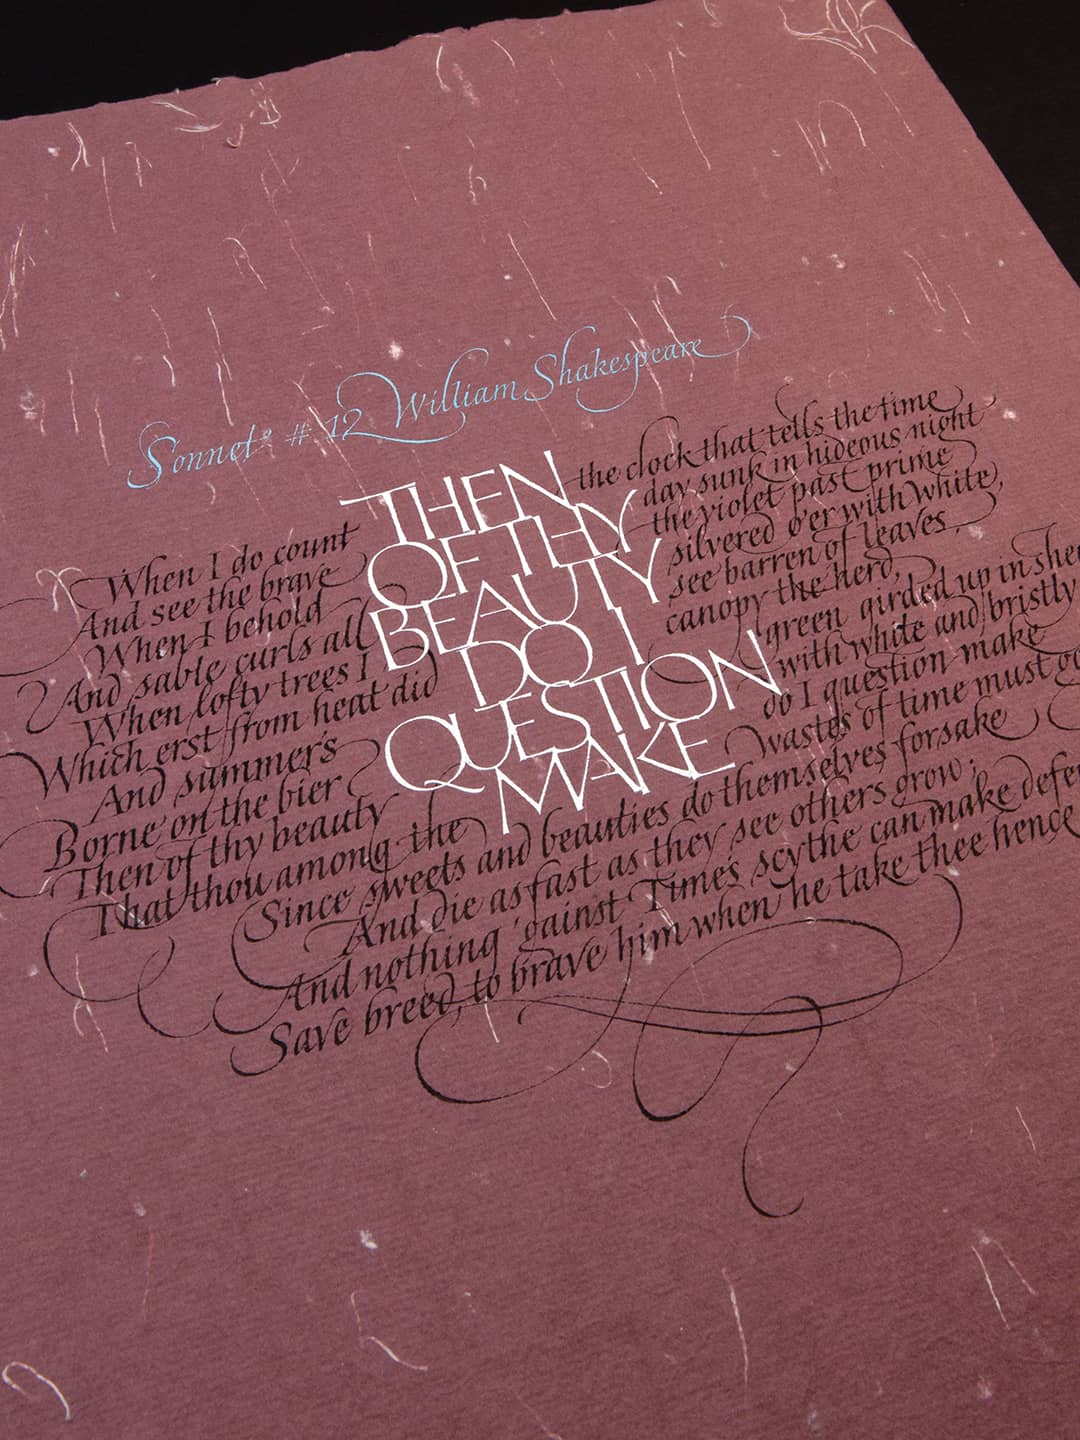 Sonnet # 12 William Shakespeare
THEN
OF THY
BEAUTY
DO I
QUESTION
MAKE
When I do count the clock that tells the time
And see the brave day sunk in hideous night
When I behold the violet past prime
And sable curls all silvered o'er with white,
When lofty trees I see barren of leaves,
Which erst from heat did canopy the herd,
And summer's green girded up in she
Borne on the bier with white and bristly
Then of thy beauty do I question make
That thou among the wastes of time must go
Since sweets and beauties do themselves forsake
And die as fast as they see others grow;
And nothing 'gainst Time's scythe can make defe
Save breed, to brave him when he take thee hence